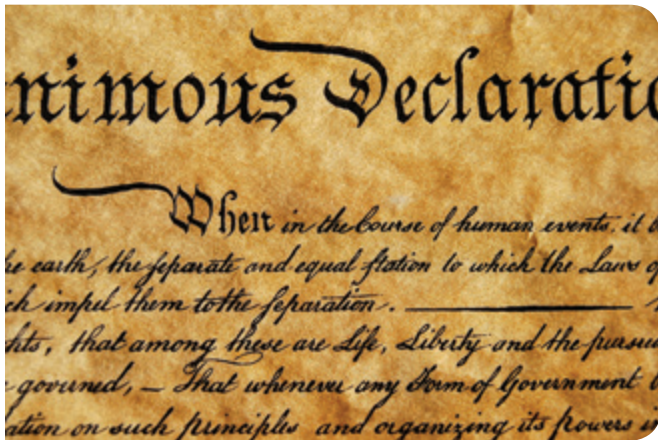 nimous Declaratio
When in the Course of human events, it b
he earth, the separate and equal station to which the Laws of
ch impel them to the separation. ———
hts, that among these are Life, Liberty and the pursui
e governed, — That whenever any Form of Government b
ation on such principles and organizing its powers in